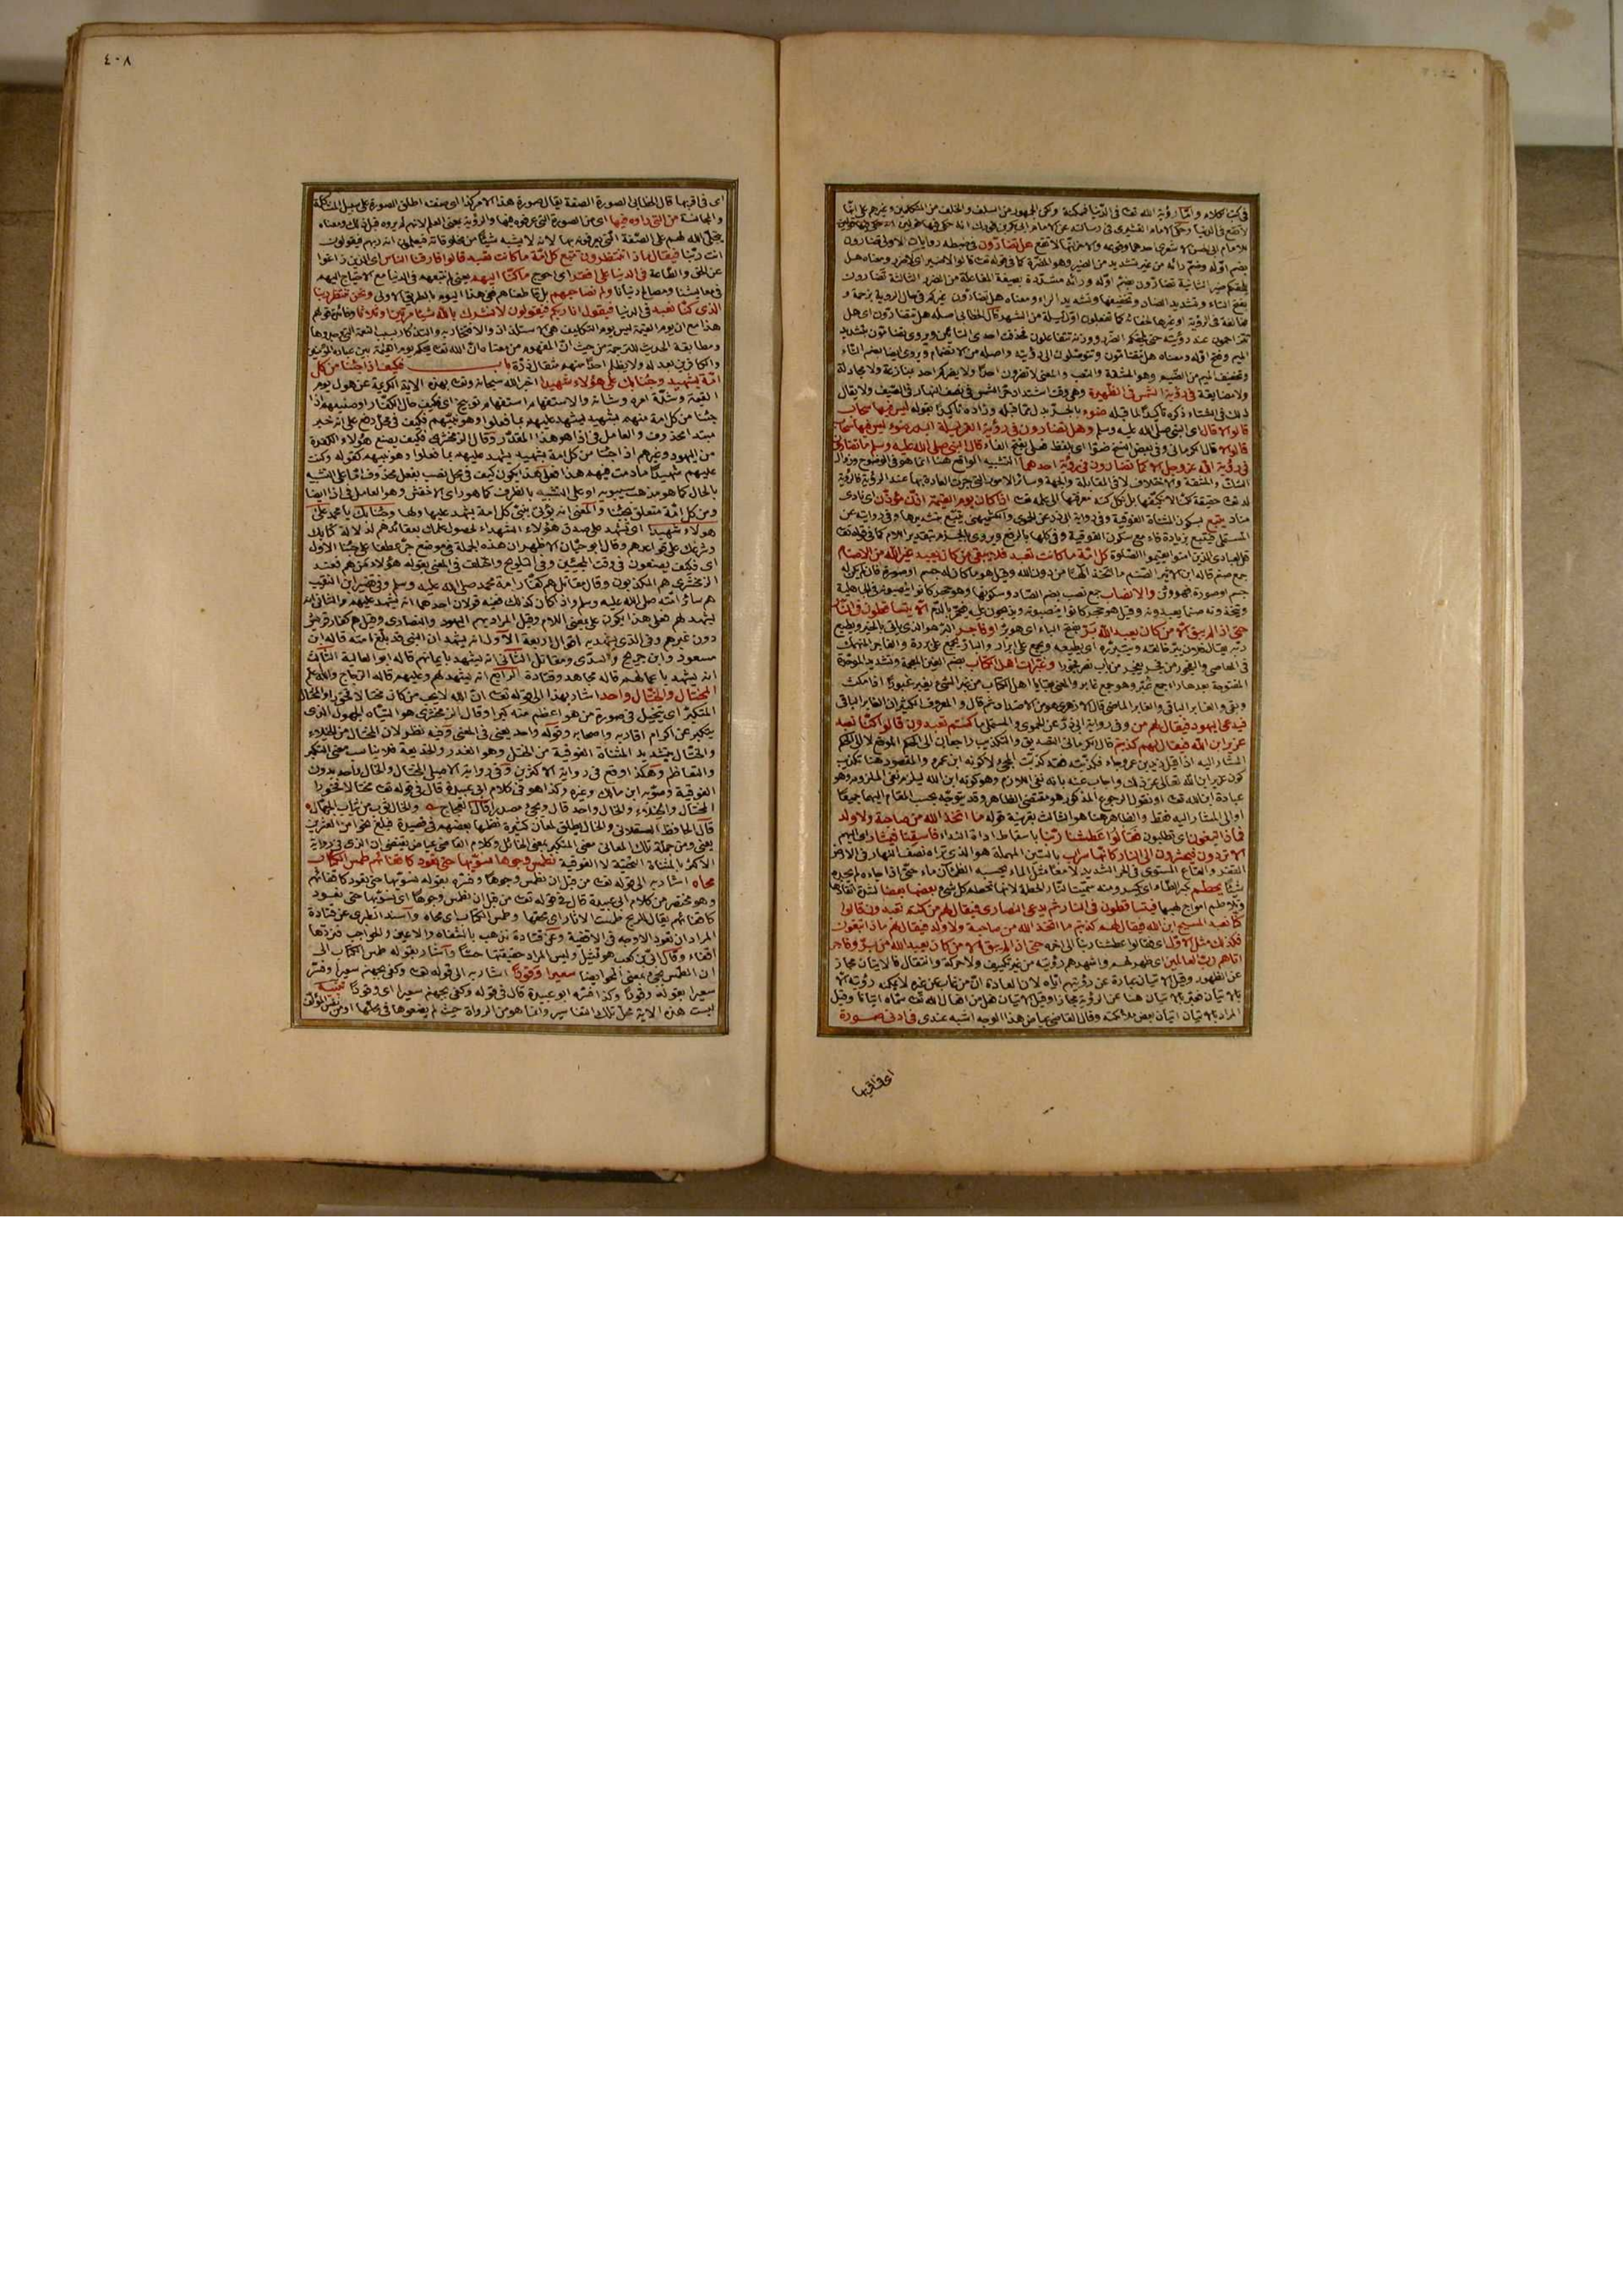 في كتب الكلام واما رؤية الله تعالى في الدنيا فممكنة ولكن الجمهور من السلف والخلف من المتكلمين وغيرهم على انها
لا تقع في الدنيا وحكى الامام القشيري في رسالته عن الامام ابي بكر بن فورك انه حكى فيها قولين
للامام ابي الحسن الاشعري احدهما وقوعه والاخر انها لا تقع هل تضارون في ضبطه روايات الاولى تضارون
بضم اوله وضم رائه من غير تشديد من الضير وهو المضرة كما في قوله تعالى قالوا لا ضير اي لا ضرر ومعناه هل
يلحقكم ضير الثانية تضارون بضم اوله ورائه مشددة بصيغة المفاعلة من الضرر الثالثة تضارون
بفتح التاء وتشديد الضاد وتخفيفها وتشديد الراء ومعناه هل تضارون غيركم في حال الرؤية بزحمة و
مخالفة في الرؤية او غيرها لخفائه كما تفعلون اول ليلة من الشهر قال الخطابي اصله هل تتضارون اي هل
تتزاحمون عند رؤيته حتى يلحقكم الضرر ووزنه تتفاعلون فحذفت احدى التائين ويروى تضامون بتشديد
الميم وفتح اوله ومعناه هل تتضامون وتتوصلون الى رؤيته واصله من الانضمام ويروى ايضا بضم التاء
وتخفيف الميم من الضيم وهو المشقة والتعب والمعنى لا تضرون احدا ولا يضركم احد بمنازعة ولا مجادلة
ولا مضايقة في رؤية الشمس في الظهيرة وهي وقت اشتداد حر الشمس في نصف النهار في الصيف ولا يقال
ذلك في الشتاء ذكره تأكيدا لما قبله ضوء بالجر بدل مما قبله وزاده تأكيدا بقوله ليس فيها سحاب
قالوا لا قال اي النبي صلى الله عليه وسلم وهل تضارون في رؤية القمر ليلة البدر ضوء ليس فيها سحاب
قالوا لا قال الكرماني وفي بعض النسخ ضوا اي بلفظ فعلى بفتح الفاء قال النبي صلى الله عليه وسلم ما تضارون
في رؤية الله عز وجل الا كما تضارون في رؤية احدهما التشبيه الواقع هنا انما هو في الوضوح وزوال
الشك والمشقة والاختلاف لا في المقابلة والجهة وسائر الامور التي جرت العادة بها عند الرؤية فالرؤية
له تعالى حقيقة لكنا لا نكيفها بل نكل كنه معرفتها الى علمه تعالى اذا كان يوم القيمة اذن مؤذن اي نادى
مناد يتبع بسكون المثناة الفوقية وفي رواية ابي ذر عن الحموي والكشميهني يتبع بتشديدها وفي رواية عن
المستملي فيتبع بزيادة فاء مع سكون الفوقية وفي كلها بالرفع ويروى بالجزم بتقدير اللام كما في قوله تعالى
قل لعبادي الذين امنوا يقيموا الصلوة كل امة ما كانت تعبد فلا يبقى من كان يعبد غير الله من الاصنام
جمع صنم قاله ابن الاثير الصنم ما اتخذ الها من دون الله وقيل هو ما كان له جسم او صورة فان لم يكن له
جسم او صورة فهو وثن والانصاب جمع نصب بضم الصاد وسكونها وهو حجر كانوا ينصبونه في الجاهلية
ويتخذونه صنما يعبدونه وقيل هو حجر كانوا ينصبونه ويذبحون عليه فيحمر بالدم الا يتساقطون في النار
حتى اذا لم يبق الا من كان يعبد الله بر بفتح الباء اي هو بر او فاجر البر هو الذي ياتي بالخير ويطيع
ربه يقال فلان يبر خالقه ويتبرره اي يطيعه ويجمع على ابرار والبار يجمع على بررة والفاجر المنهمك
في المعاصي والفجور من فجر يفجر من باب نصر فجورا وغبرات اهل الكتاب بضم الغين المعجمة وتشديد الموحدة
المفتوحة بعدها راء جمع غبر وهو جمع غابر والمعنى بقايا اهل الكتاب من غبر الشيء يغبر غبورا اذا مكث
وبقي والغابر الباقي والغابر الماضي قال الازهري هو من الاضداد ثم قال والمعروف الكثير ان الغابر الباقي
فيدعى اليهود فيقال لهم من وفي رواية ابي ذر عن الحموي والمستملي ما كنتم تعبدون قالوا كنا نعبد
عزير ابن الله فيقال لهم كذبتم قال الكرماني التصديق والتكذيب راجعان الى الحكم الموقع لا الى الحكم
المشار اليه اذا قيل زيد بن عمرو جاء فكذبته فقد كذبت المجيء لا كونه ابن عمرو والمقصود هنا تكذيب
كون عزير ابن الله تعالى عن ذلك واجاب عنه بانه نفى اللازم وهو كونه ابن الله ليلزم نفي الملزوم وهو
عبادة ابن الله تعالى او نقول الرجوع المذكور هو مقتضى الظاهر وقد يتوجه بحسب المقام اليهما جميعا
او الى المشار اليه فقط والظاهر هنا هو الثالث بقرينة قوله ما اتخذ الله من صاحبة ولا ولد
فماذا تبغون اي تطلبون فقالوا عطشنا ربنا باسقاط اداة النداء فاسقنا فيشار اي اليهم
الا تردون فيحشرون الى النار كانها سراب بالسين المهملة هو الذي تراه نصف النهار في الارض
القفر والقاع المستوي في الحر الشديد لامعا مثل الماء يحسبه الظمآن ماء حتى اذا جاءه لم يجده
شيئا يحطم بكسر الطاء اي يكسر ومنه سميت النار الحطمة لانها تحطم كل شيء بعضها بعضا لشدة اتقادها
وتلاطم امواج لهبها فيتساقطون في النار ثم يدعى النصارى فيقال لهم من كنتم تعبدون قالوا
كنا نعبد المسيح ابن الله فيقال لهم كذبتم ما اتخذ الله من صاحبة ولا ولد فيقال لهم ماذا تبغون
فكذلك مثل الاول اي فقالوا عطشنا ربنا الى اخره حتى اذا لم يبق الا من كان يعبد الله من بر وفاجر
اتاهم رب العالمين اي ظهر لهم واشهدهم رؤيته من غير تكييف ولا حركة وانتقال فالاتيان مجاز
عن الظهور وقيل الاتيان عبارة عن رؤيتهم اياه لان العادة ان من غاب عن غيره لا يمكنه رؤيته الا
بالاتيان فعبر بالاتيان هنا عن الرؤية مجازا وقيل الاتيان فعل من افعال الله تعالى سماه اتيانا وقيل
المراد بالاتيان اتيان بعض ملائكته وقال القاضي عياض هذا الوجه اشبه عندي في ادنى صورة
اي في اقربها
٤٠٨
اي في اقربها قال الخطابي الصورة الصفة يقال صورة هذا الامر كذا اي صفته اطلق الصورة على سبيل المشاكلة
والمجانسة من التي راوه فيها اي من الصورة التي عرفوه فيها والرؤية بمعنى العلم لانهم لم يروه قبل ذلك ومعناه
يتجلى الله لهم على الصفة التي يعرفونه بها لانه لا يشبه شيئا من مخلوقاته فيعلمون انه ربهم فيقولون
انت ربنا فيقال ماذا تنتظرون تتبع كل امة ما كانت تعبد قالوا فارقنا الناس اي الذين زاغوا
عن الحق والطاعة في الدنيا على افقر اي احوج ما كنا اليهم يعني لم نتبعهم في الدنيا مع الاحتياج اليهم
في معايشنا ومصالح دنيانا ولم نصاحبهم بل قاطعناهم ففي هذا اليوم بالطريق الاولى ونحن ننتظر ربنا
الذي كنا نعبد في الدنيا فيقول انا ربكم فيقولون لا نشرك بالله شيئا مرتين او ثلاثا وفائدة قولهم
هذا مع ان يوم القيمة ليس يوم التكليف هي الاستلذاذ والافتخار به والتذكار بسبب النعمة التي وجدوها
ومطابقة الحديث للترجمة من حيث ان المفهوم من معناه ان الله تعالى يحكم يوم القيمة بين عباده المؤمنين
والكافرين بعدله ولا يظلم احدا منهم مثقال ذرة باب فكيف اذا جئنا من كل
امة بشهيد وجئنا بك على هؤلاء شهيدا اخبر الله سبحانه وتعالى بهذه الاية الكريمة عن هول يوم
القيمة وشدة امره وشانه والاستفهام استفهام توبيخ اي فكيف حال الكفار او صنيعهم اذا
جئنا من كل امة منهم بشهيد يشهد عليهم بما فعلوا وهو نبيهم فكيف في محل رفع على انه خبر
مبتدا محذوف والعامل في اذا هو هذا المقدر وقال الزمخشري فكيف يصنع هؤلاء الكفرة
من اليهود وغيرهم اذا جئنا من كل امة بشهيد يشهد عليهم بما فعلوا وهو نبيهم كقوله وكنت
عليهم شهيدا ما دمت فيهم هذا فعلى هذا يكون كيف في محل نصب بفعل محذوف اما على التشبيه
بالحال كما هو مذهب سيبويه او على التشبيه بالظرف كما هو راي الاخفش وهو العامل في اذا ايضا
ومن كل امة متعلق بجئنا والمعنى انه يؤتى بنبي كل امة يشهد عليها ولها وجئنا بك يا محمد على
هؤلاء شهيدا اي تشهد على صدق هؤلاء الشهداء لحصول علمك بعقائدهم لدلالة كتابك
وشرعك على قواعدهم وقال ابو حيان الاظهر ان هذه الجملة في موضع جر عطفا على جئنا الاول
اي فكيف يصنعون في وقت المجيئين وفي التلويح واختلف في المعنى بقوله هؤلاء من هم فعند
الزمخشري هم المكذبون وقال مقاتل هم كفار امة محمد صلى الله عليه وسلم وفي تفسير ابن النقيب
هم سائر امته صلى الله عليه وسلم واذا كان كذلك ففيه قولان احدهما انه يشهد عليهم والثاني انه
يشهد لهم فعلى هذا يكون على بمعنى اللام وقيل المراد بهم اليهود والنصارى وقيل هم كفار قريش
دون غيرهم وفي الذي يشهد به اقوال اربعة الاول انه يشهد ان النبي قد بلغ امته قاله ابن
مسعود وابن جريج والسدي ومقاتل الثاني انه يشهد بايمانهم قاله ابو العالية الثالث
انه يشهد باعمالهم قاله مجاهد وقتادة الرابع انه يشهد لهم وعليهم قاله الزجاج والله اعلم
المختال والختال واحد اشار بهذا الى قوله تعالى ان الله لا يحب من كان مختالا فخورا والمختال
المتكبر اي يتخيل في صورة من هو اعظم منه كبرا وقال الزمخشري هو التياه الجهول الذي
يتكبر عن اكرام اقاربه واصحابه وقوله واحد يعني في المعنى وفيه نظر لان المختال من الخيلاء
والختال بتشديد المثناة الفوقية من الختل وهو الغدر والخديعة فلا يناسب معنى التكبر
والتعاظم وهكذا وقع في رواية الاكثرين وفي رواية الاصيلي المختال والخال واحد بدون
الفوقية وصوبه ابن مالك وغيره وكذا هو في كلام ابي عبيدة قال في قوله تعالى مختالا فخورا
المختال والخيلاء والخال واحد قال ويجيء مصدرا قال العجاج والخال ثوب من ثياب الجهال
قال الحافظ العسقلاني والخال يطلق لمعان كثيرة نظمها بعضهم في قصيدة فبلغ نحوا من العشرين
يعني ومن جملة تلك المعاني معنى المتكبر بمعنى الخائل وكلام القاضي عياض يقتضي ان الذي في رواية
الاكثر بالمثناة التحتية لا الفوقية نطمس وجوها نسويها حتى تعود كاقفائهم طمس الكتاب
محاه اشار به الى قوله تعالى من قبل ان نطمس وجوها وفسره بقوله نسويها حتى تعود كاقفائهم
وهو مختصر من كلام ابي عبيدة قال في قوله تعالى من قبل ان نطمس وجوها اي نسويها حتى تعود
كاقفائهم يقال للريح طمست الاثار اي محتها وطمس الكتاب اي محاه واسند الطبري عن قتادة
المراد ان تعود الاوجه في الاقفية وعن قتادة تذهب بالشفاه والاعين والحواجب فنردها
اقفاء وقال ابي بن كعب هو تمثيل وليس المراد حقيقتها حسا واشار بقوله طمس الكتاب الى
ان الطمس يجيء بمعنى المحو ايضا سعيرا وقودا اشار به الى قوله تعالى وكفى بجهنم سعيرا وفسر
سعيرا بقوله وقودا وكذا فسره ابو عبيدة قال في قوله وكفى بجهنم سعيرا اي وقودا تنبيه
ليست هذه الاية محل تلك التفاسير وانما هو من الرواة حيث لم يضعوها في محلها او من نفس المؤلف